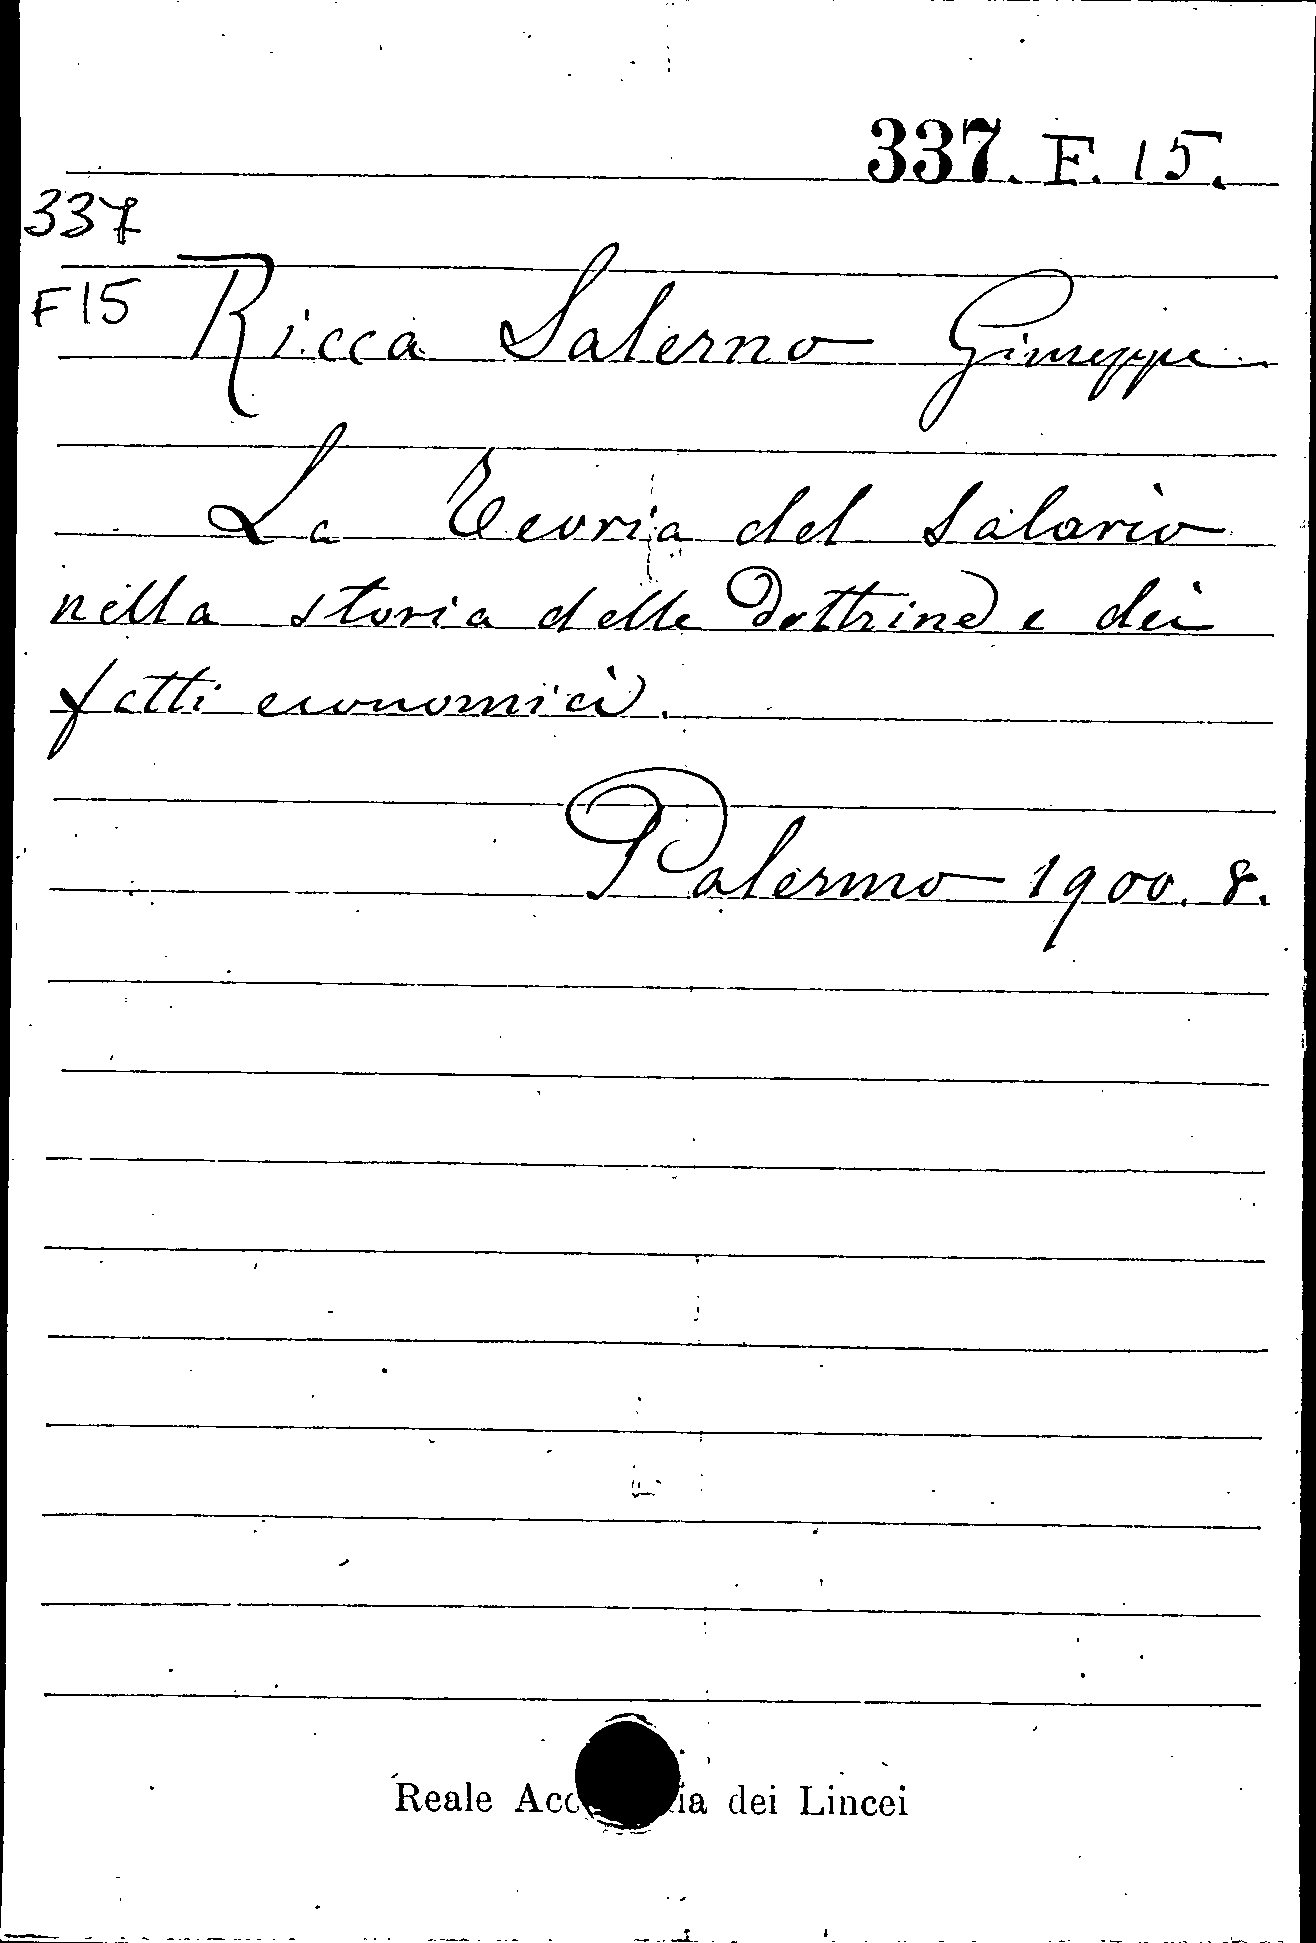 337. F. 15.
337
F15
Ricca Salerno Giuseppe
La Teoria del Salario
nella storia delle Dottrine e dei
fatti economici.
Palermo 1900. 8.
Reale Acc ia dei Lincei